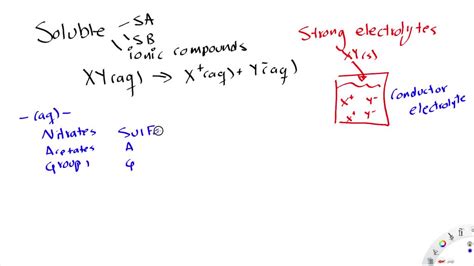 Soluble - SA
SB
ionic compounds
XY(aq) → X⁺(aq) + Y⁻(aq)
Strong electrolytes
XY(s)
X⁺ Y⁻
X⁺ Y⁻
Conductor
electrolyte
-(aq)-
Nitrates Sulf
Acetates A
Group 1 G